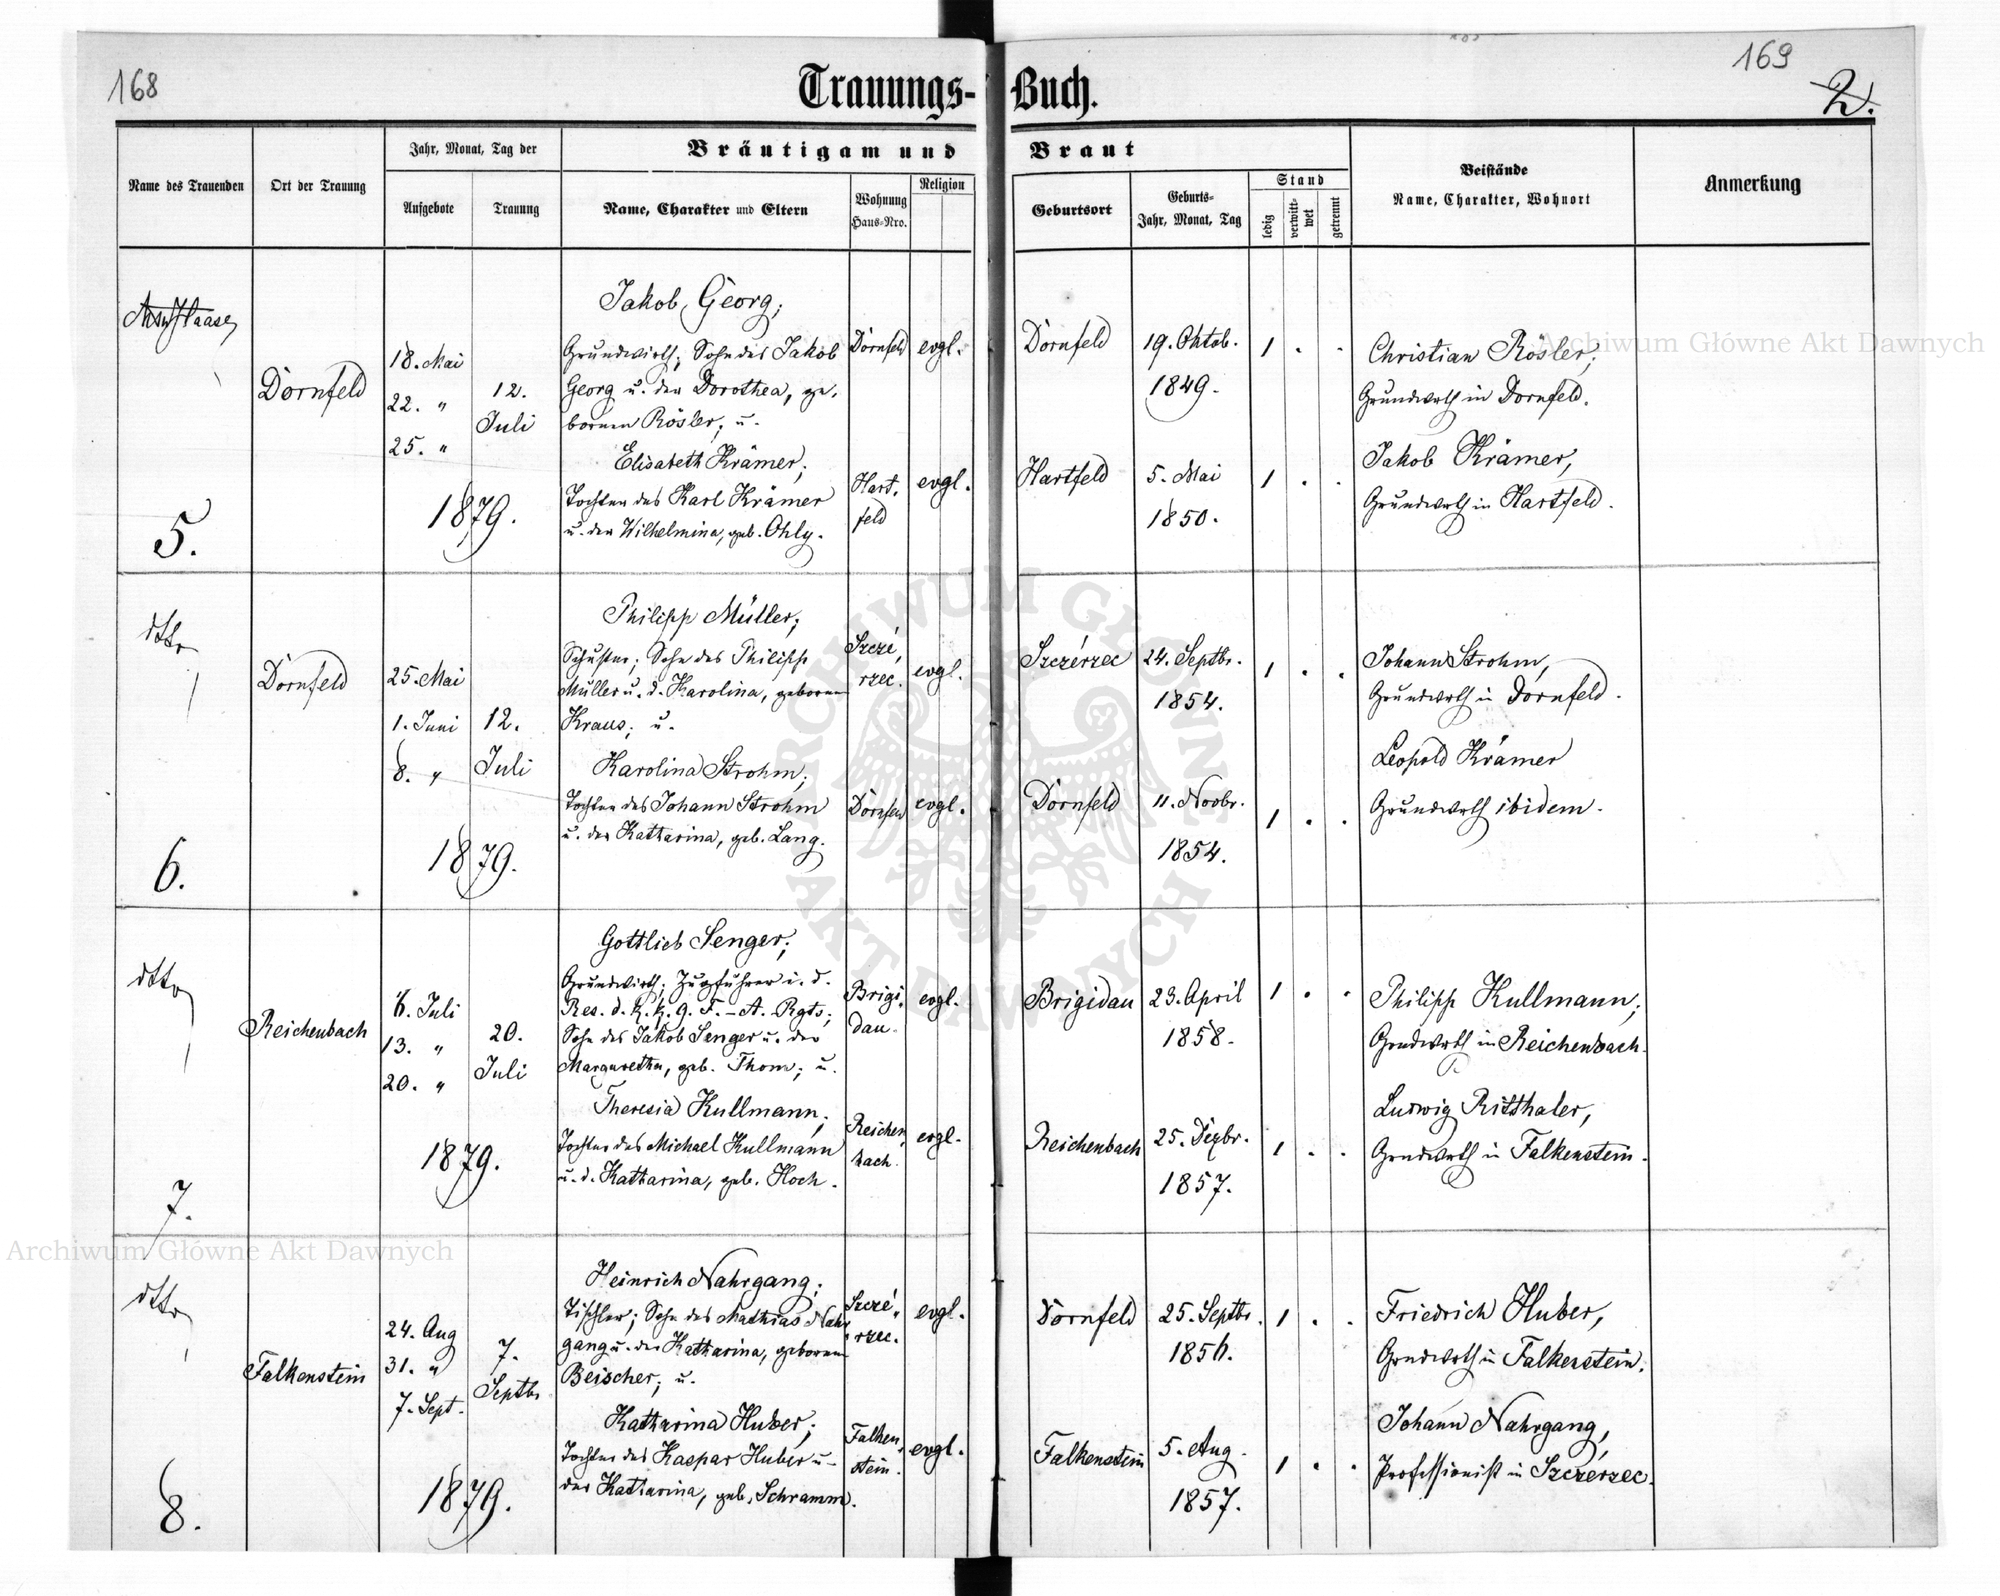 168
Trauungs-Buch.
169
2.
Name des Trauenden
Ort der Trauung
Jahr, Monat, Tag der
Aufgebote
Trauung
Bräutigam und Braut
Name, Charakter und Eltern
Wohnung
Haus-Nro.
Religion
Geburtsort
Geburts-
Jahr, Monat, Tag
Stand
ledig
verwitt-
wet
getrennt
Beistände
Name, Charakter, Wohnort
Anmerkung
Haase
5.
Dornfeld
18. Mai
22. "
25. "
12.
Juli
1879.
Jakob Georg;
Grundwirth; Sohn des Jakob
Georg u. der Dorothea, ge-
bornen Rösler; u.
Elisabeth Krämer;
Tochter des Karl Krämer
u. der Wilhelmina, geb. Ohly.
Dornfeld
evgl.
Hart-
feld
evgl.
Dornfeld
19. Oktob.
1849.
1 . .
Hartfeld
5. Mai
1850.
1 . .
Christian Rösler;
Grundwrth in Dornfeld.
Jakob Krämer,
Grundwrth in Hartfeld.
dtto
6.
Dornfeld
25. Mai
1. Juni
8. "
12.
Juli
1879.
Philipp Müller;
Schuster; Sohn des Philipp
Müller u. d. Karolina, geboren
Kraus; u.
Karolina Strohm;
Tochter des Johann Strohm
u. der Katharina, geb. Lang.
Szczé,
rzec.
evgl.
Dornfeld
evgl.
Szczérzec
24. Septbr.
1854.
1 . .
Dornfeld
11. Novbr.
1854.
1 . .
Johann Strohm,
Grundwrth in Dornfeld.
Leopold Krämer
Grundwrth ibidem.
dtto
7.
Reichenbach
6. Juli
13. "
20. "
20.
Juli
1879.
Gottlieb Senger;
Grundwirth; Zugführer i. d.
Res. d. k. k. 9. F.-A. Rgts;
Sohn des Jakob Senger u. der
Margaretha, geb. Thom; u.
Theresia Kullmann;
Tochter des Michael Kullmann
u. d. Katharina, geb. Hoch.
Brigi,
dau.
evgl.
Reichen,
bach.
evgl.
Brigidau
23. April
1858.
1 . .
Reichenbach
25. Dezbr.
1857.
1 . .
Philipp Kullmann;
Grndwrth in Reichenbach.
Ludwig Ritthaler,
Grndwrth in Falkenstein.
dtto
8.
Falkenstein
24. Aug
31. "
7. Sept.
7.
Septbr
1879.
Heinrich Nahrgang;
Tischler; Sohn des Mathias Nahr,
gang u. der Katharina, geboren
Beischer; u.
Katharina Huber;
Tochter des Kaspar Huber u
der Katharina, geb. Schramm.
Szczé,
rzec.
evgl.
Falken,
stein.
evgl.
Dornfeld
25. Septbr.
1856.
1 . .
Falkenstein
5. Aug.
1857.
1 . .
Friedrich Huber,
Grndwrth in Falkenstein.
Johann Nahrgang,
Professionist in Szczérzec.
Archiwum Główne Akt Dawnych
ARCHIWUM GŁÓWNE
AKT DAWNYCH
Archiwum Główne Akt Dawnych